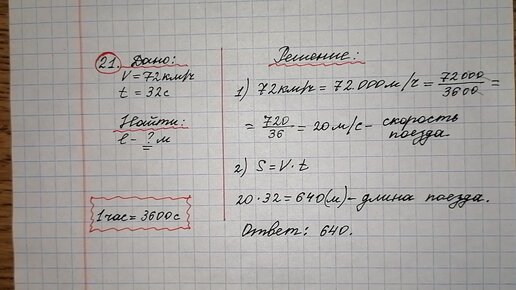 21. Дано:
V = 72 км/ч
t = 32 с
Найти:
ℓ - ? м
1 час = 3600 с
Решение:
1) 72 км/ч = 72 000 м/ч = 72 000/3600 =
= 720/36 = 20 м/с - скорость
поезда.
2) S = V · t
20 · 32 = 640 (м) - длина поезда.
Ответ: 640.